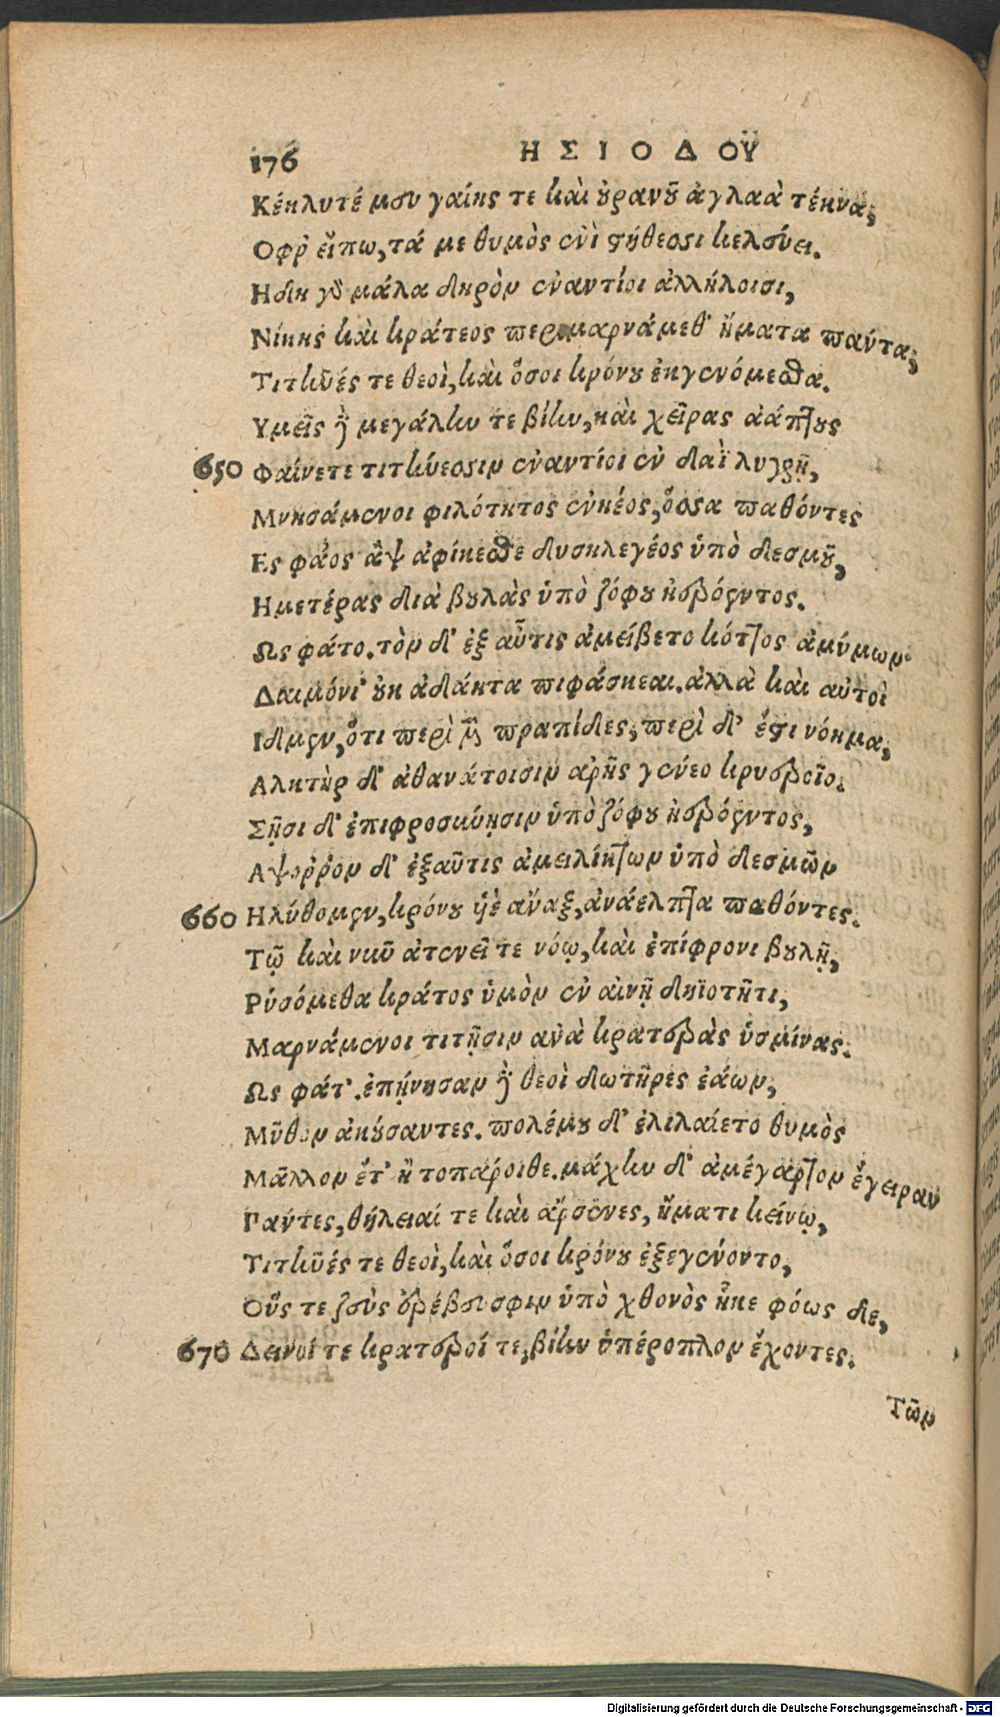 176 ΗΣΙΟΔΟΥ
Κέκλυτέ μευ γαίης τε καὶ ȣρανȣ͂ ἀγλαὰ τέκνα,
Οφρ' εἴπω, τά με θυμὸς ἐνὶ στήθεσσι κελεύει.
Ηδη γὰρ μάλα δηρὸν ἐναντίοι ἀλλήλοισι,
Νίκης καὶ κράτεος περι μαρνάμεθ' ἤματα πάντα,
Τιτῆνές τε θεοὶ, καὶ ὅσοι κρόνȣ ἐκγενόμεσθα.
Υμεῖς δὲ μεγάλην τε βίην, καὶ χεῖρας ἀάπτȣς
650 Φαίνετε τιτήνεσσιν ἐναντίοι ἐν δαῒ λυγρῇ,
Μνησάμενοι φιλότητος ἐνηέος, ὅσσα παθόντες
Ες φάος ἂψ ἀφίκεσθε δυσηλεγέος ὑπὸ δεσμȣ͂,
Ημετέρας διὰ βȣλὰς ὑπὸ ζόφȣ ἠερόεντος.
Ως φάτο. τὸν δ' ἐξ αὖτις ἀμείβετο κόττος ἀμύμων·
Δαιμόνι' ȣκ ἀδάητα πιφάσκεαι. ἀλλὰ καὶ αὐτοὶ
Ιδμεν, ὅτι περὶ μὲν πραπίδες, περὶ δ' ἔστι νόημα,
Αλκτὴρ δ' ἀθανάτοισιν ἀρῆς γένεο κρυεροῖο.
Σῇσι δ' ἐπιφροσύνῃσιν ὑπὸ ζόφȣ ἠερόεντος,
Αψοῤῥον δ' ἐξαῦτις ἀμειλίκτων ὑπὸ δεσμῶν
660 Ηλύθομεν, κρόνȣ ὑιὲ ἄναξ, ἀνάελπτα παθόντες.
Τῷ καὶ νῦν ἀτενεῖ τε νόῳ, καὶ ἐπίφρονι βȣλῇ,
Ρυσόμεθα κράτος ὑμὸν ἐν αἰνῇ δηϊοτῆτι,
Μαρνάμενοι τιτῆσιν ἀνὰ κρατερὰς ὑσμίνας.
Ως φάτ'. ἐπῄνησαν δὲ θεοὶ δωτῆρες ἐάων,
Μῦθον ἀκȣ́σαντες. πολέμȣ δ' ἐλιλαίετο θυμὸς
Μᾶλλον ἔτ' ἢ τοπάροιθε. μάχην δ' ἀμέγαρτον ἔγειραν
Παντες, θήλειαί τε καὶ ἄρσενες, ἤματι κείνῳ,
Τιτῆνές τε θεοὶ, καὶ ὅσοι κρόνȣ ἐξεγένοντο,
Οὕς τε ζεὺς ἐρέβευσφιν ὑπὸ χθονὸς ἧκε φόως δε,
670 Δεινοί τε κρατεροί τε, βίην ὑπέροπλον ἔχοντες.
Τῶν
Digitalisierung gefördert durch die Deutsche Forschungsgemeinschaft - DFG